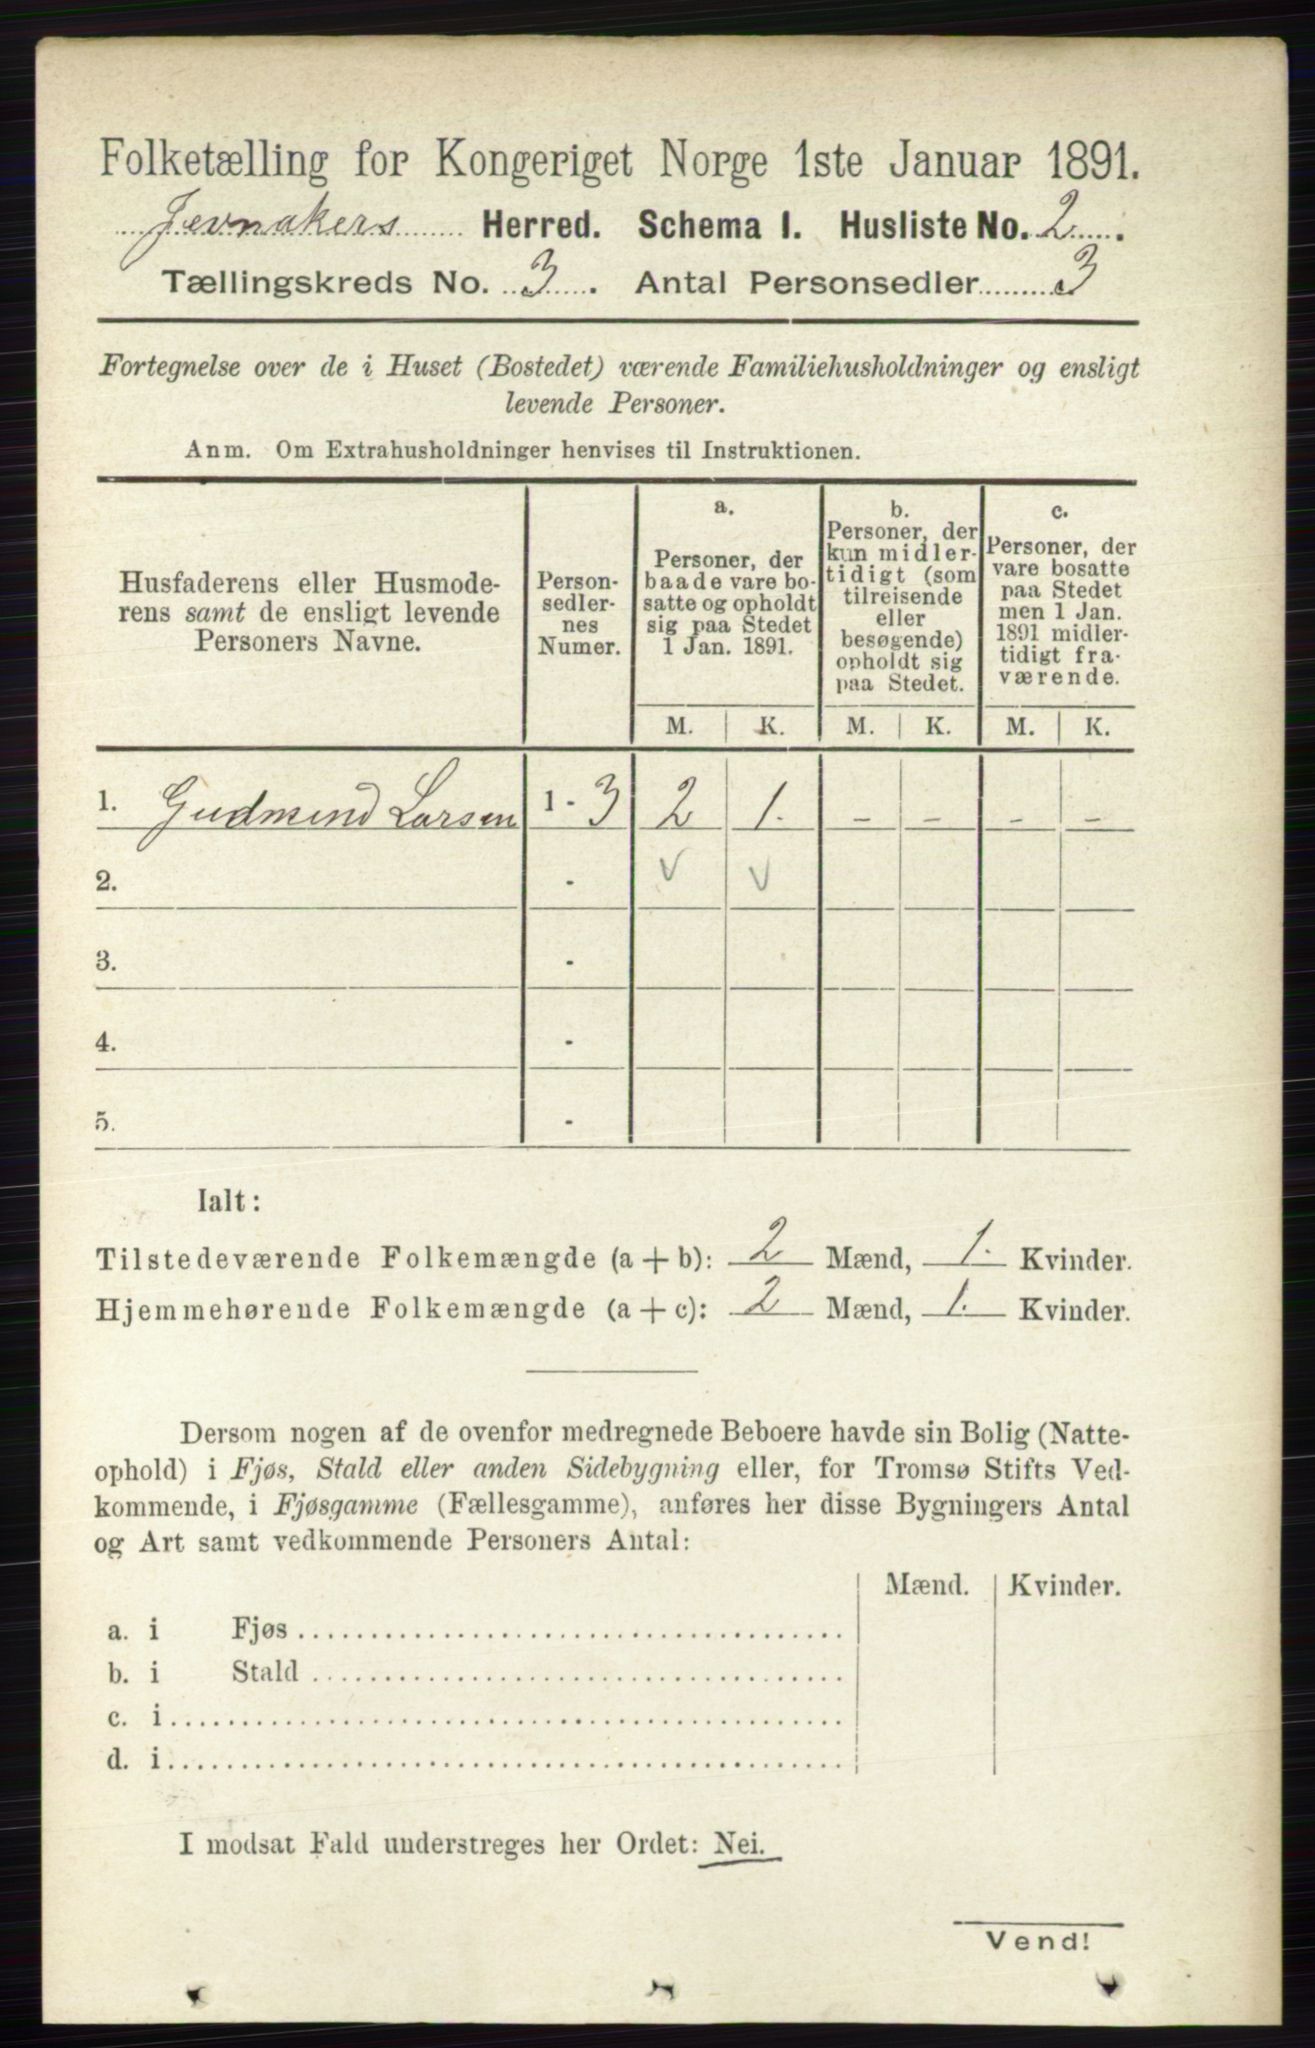 Folketælling for Kongeriget Norge 1ste Januar 1891.
Jevnakers Herred. Schema I. Husliste No. 2.
Tællingskreds No. 3. Antal Personsedler 3
Fortegnelse over de i Huset (Bostedet) værende Familiehusholdninger og ensligt
levende Personer.
Anm. Om Extrahusholdninger henvises til Instruktionen.
Husfaderens eller Husmode-
rens samt de ensligt levende
Personers Navne.
Person-
sedler-
nes
Numer.
a.
Personer, der
baade vare bo-
satte og opholdt
sig paa Stedet
1 Jan. 1891.
b.
Personer, der
kun midler-
tidigt (som
tilreisende
eller
besøgende)
opholdt sig
paa Stedet.
c.
Personer, der
vare bosatte
paa Stedet
men 1 Jan.
1891 midler-
tidigt fra-
værende.
M. K. M. K. M. K.
1. Gudmund Larsen 1 - 3 2 1. - - - -
2. - v v
3. -
4. -
5. -
Ialt:
Tilstedeværende Folkemængde (a + b): 2 Mænd, 1. Kvinder.
Hjemmehørende Folkemængde (a + c): 2 Mænd, 1. Kvinder.
Dersom nogen af de ovenfor medregnede Beboere havde sin Bolig (Natte-
ophold) i Fjøs, Stald eller anden Sidebygning eller, for Tromsø Stifts Ved-
kommende, i Fjøsgamme (Fællesgamme), anføres her disse Bygningers Antal
og Art samt vedkommende Personers Antal:
Mænd. Kvinder.
a. i Fjøs
b. i Stald
c. i
d. i
I modsat Fald understreges her Ordet: Nei.
Vend!